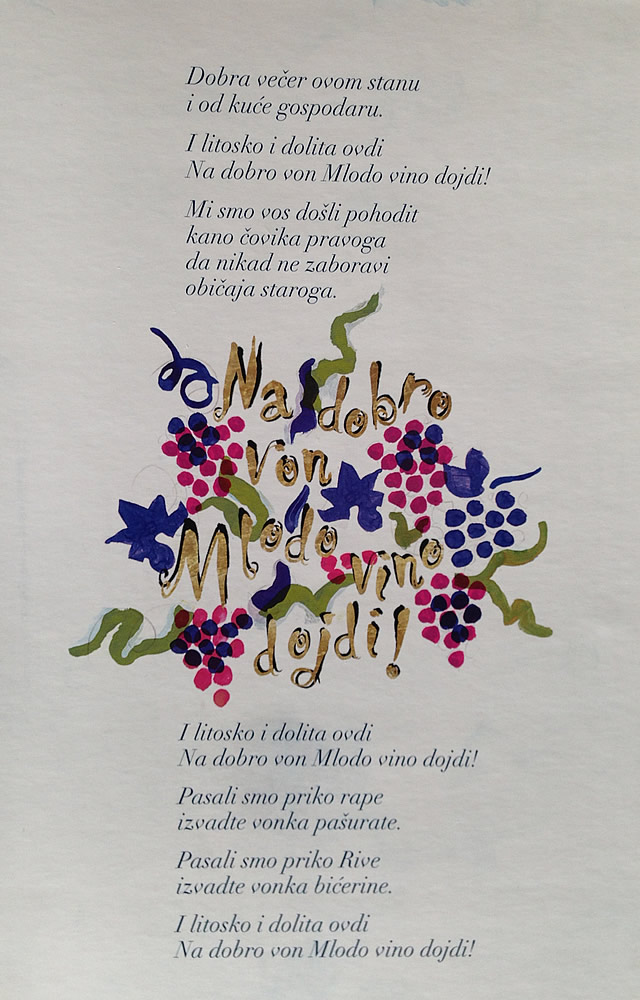 Dobra večer ovom stanu
i od kuće gospodaru.
I litosko i dolita ovdi
Na dobro von Mlodo vino dojdi!
Mi smo vos došli pohodit
kano čovika pravoga
da nikad ne zaboravi
običaja staroga.
Na dobro
von
Mlodo vino
dojdi!
I litosko i dolita ovdi
Na dobro von Mlodo vino dojdi!
Pasali smo priko rape
izvadte vonka pašurate.
Pasali smo priko Rive
izvadte vonka bićerine.
I litosko i dolita ovdi
Na dobro von Mlodo vino dojdi!